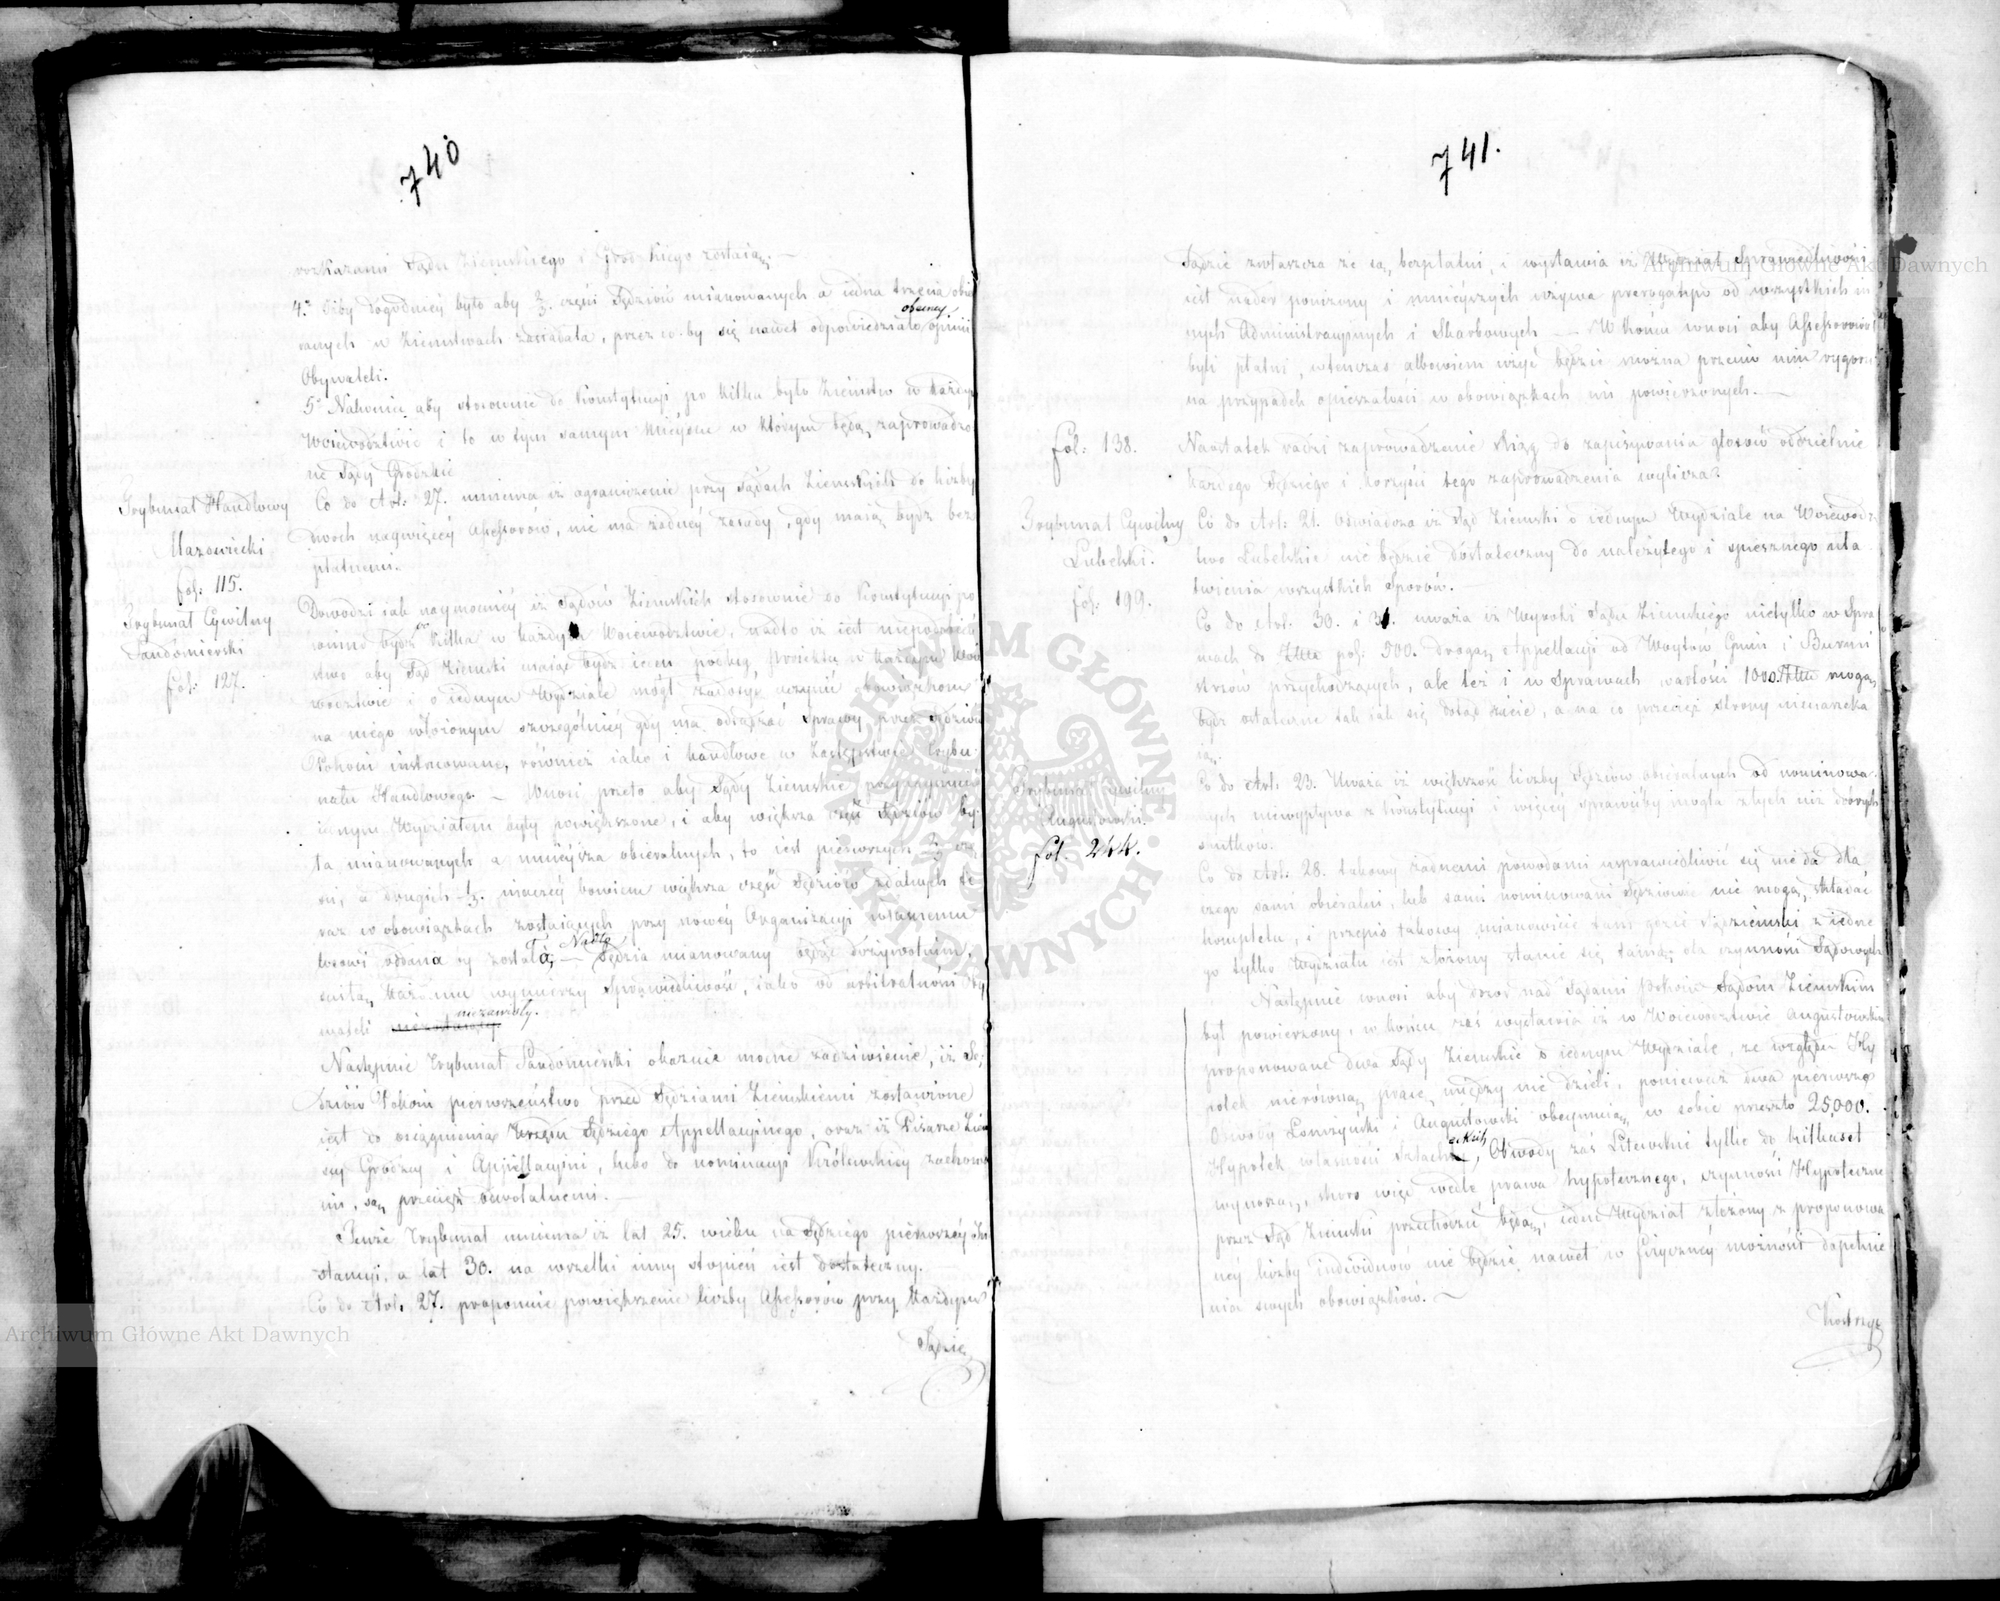 740
rozkazami Sądu Ziemskiego i Grodzkiego zostaią. —
4.º Żeby dogodniey było aby 2/3. części Sędziów mianowanych a iedna trzecia obie
ranych w Ziemstwach zasiadała, przez co by się nawet odpowiedziało opinii
obecney.
Obywateli.
5º Nakoniec aby stosownie do Konstytucyi po kilka było Ziemstw w każdym
Woiewództwie i to w tym samym mieyscu w którym będą zaprowadzo
ne Sądy Grodzkie
Trybunał Handlowy
Mazowiecki
fol: 115.
Co do Art: 27. mniema iż ograniczenie przy Sądach Ziemskich do liczby
dwoch naywięcey Assessorów, nie ma żadney zasady, gdy maią bydz bez
płatnemi.
Trybunał Cywilny
Sandomierski
fol: 127.
Dowodzi iak naymocniey iż Sądów Ziemskich stosownie do Konstytucyi po
winno bydz kilka w każdym Woiewództwie, nadto iż iest niepodobień
stwo aby Sąd Ziemski maiąc bydz ieden podług Proiektu w każdym Woie
wództwie i o iednym Wydziale mógł zadosyć uczynić obowiązkom
na niego włożonym szczególniey gdy ma odsądzać sprawy przez Sędziów
Pokoiu instruowane, również iako i handlowe w Zastępstwie Trybu
nału Handlowego. — Wnosi przeto aby Sądy Ziemskie przynaymniey
iednym Wydziałem były powiększone, i aby większa część Sędziów by
ła mianowanych a mnieysza obieralnych, to iest pierwszych 2/3 czę
ści, a drugich 1/3. inaczey bowiem większa część Sędziów zdatnych te
raz w obowiązkach zostaiących przy nowey Organizacyi
losowi oddana by została, — Nadto Sędzia mianowany będąc dożywotnim,
każdemu wymierzy Sprawiedliwość, iako od arbitralności
niezawisły.
Następnie Trybunał Sandomierski okazuie mocne zadziwienie, iż Sę
dziów Pokoiu pierwszeństwo przed Sędziami Ziemskiemi zostawione
iest do osiągnienia Urzędu Sędziego Appellacyinego, oraz iż Pisarze Ziem
scy Grodzcy i Appellacyini, lubo do nominacyi Królewskiey zachowa
ni, są przecież odwołalnemi. —
Tenże Trybunał mniema iż lat 25. wieku na Sędziego pierwszey In
stancyi, a lat 30. na wszelki inny stopień iest dostateczny. —
Co do Art: 27. proponuie powiększenie liczby Assessorów przy każdym
Sądzie
741.
Sądzie zwłaszcza że są bezpłatni, i wystawia iż Wydział Sprawiedliwości
iest nader poniżony i mnieyszych używa prerogatyw od wszystkich in
nych Administracyinych i Skarbowych — W końcu wnosi aby Assessorowie
byli płatni, wtenczas albowiem użyć będzie można przeciw nim rygoru
na przypadek opieszałości w obowiązkach im powierzonych. —
fol: 138.
Naostatek radzi zaprowadzenie Xiąg do zapisywania głosów oddzielnie
każdego Sędziego i korzyści tego zaprowadzenia wylicza.
Trybunał Cywilny
Lubelski.
fol: 199.
Co do Art: 21. Oświadcza iż Sąd Ziemski o iednym Wydziale na Woiewódz
two Lubelskie nie będzie dostateczny do należytego i spiesznego uła
twienia wszystkich Sporów. —
Co do Art. 30. i 31. uważa iż Wyroki Sądu Ziemskiego nietylko w Spra
wach do Złtu pol: 500. drogą Appellacyi od Woytów Gmin i Burmi
strzów przychodzących, ale też i w Sprawach wartości 1000. Złtu mogą
bydz ostateczne tak iak się dotąd dzieie, a na co przecież strony nienarzeka
ią.
Trybunał Cywilny
Augustowski.
fol. 244.
Co do Art: 23. Uważa iż większość liczby Sędziów obieralnych od nominowa
nych niewypływa z Konstytucyi i więcey sprawićby mogła złych niż dobrych
skutków.
Co do Art: 28. takowy żadnemi powodami usprawiedliwić się nie da dla
czego sami obieralni, lub sami nominowani Sędziowie nie mogą składać
kompletu, i przepis takowy mianowicie tam gdzie Sąd ziemski z iedne
go tylko Wydziału iest złożony stanie się tamą dla czynności Sądowych
Następnie wnosi aby dozór nad Sądami Pokoiu Sądom Ziemskim
był powierzony, w końcu zaś wystawia iż w Woiewództwie Augustowskim
proponowane dwa Sądy Ziemskie o iednym Wydziale, ze względu Hy
potek nierówną pracę między nie dzieli, ponieważ dwa pierwsze
Obwody Łomżyński i Augustowski obeymuią w sobie przeszło 25,000.
Hypotek własności Szlacheckich, Obwody zaś Litewskie tylko do kilkuset
wynoszą, skoro więc wedle prawa hypotecznego, czynności Hypoteczne
przez Sąd Ziemski przechodzić będą, ieden Wydział złożony z proponowa
ney liczby individuów nie będzie nawet w fizyczney możności dopełnie
nia swych obowiązków. —
Archiwum Główne Akt Dawnych
Archiwum Główne Akt Dawnych
ARCHIWUM GŁÓWNE AKT DAWNYCH